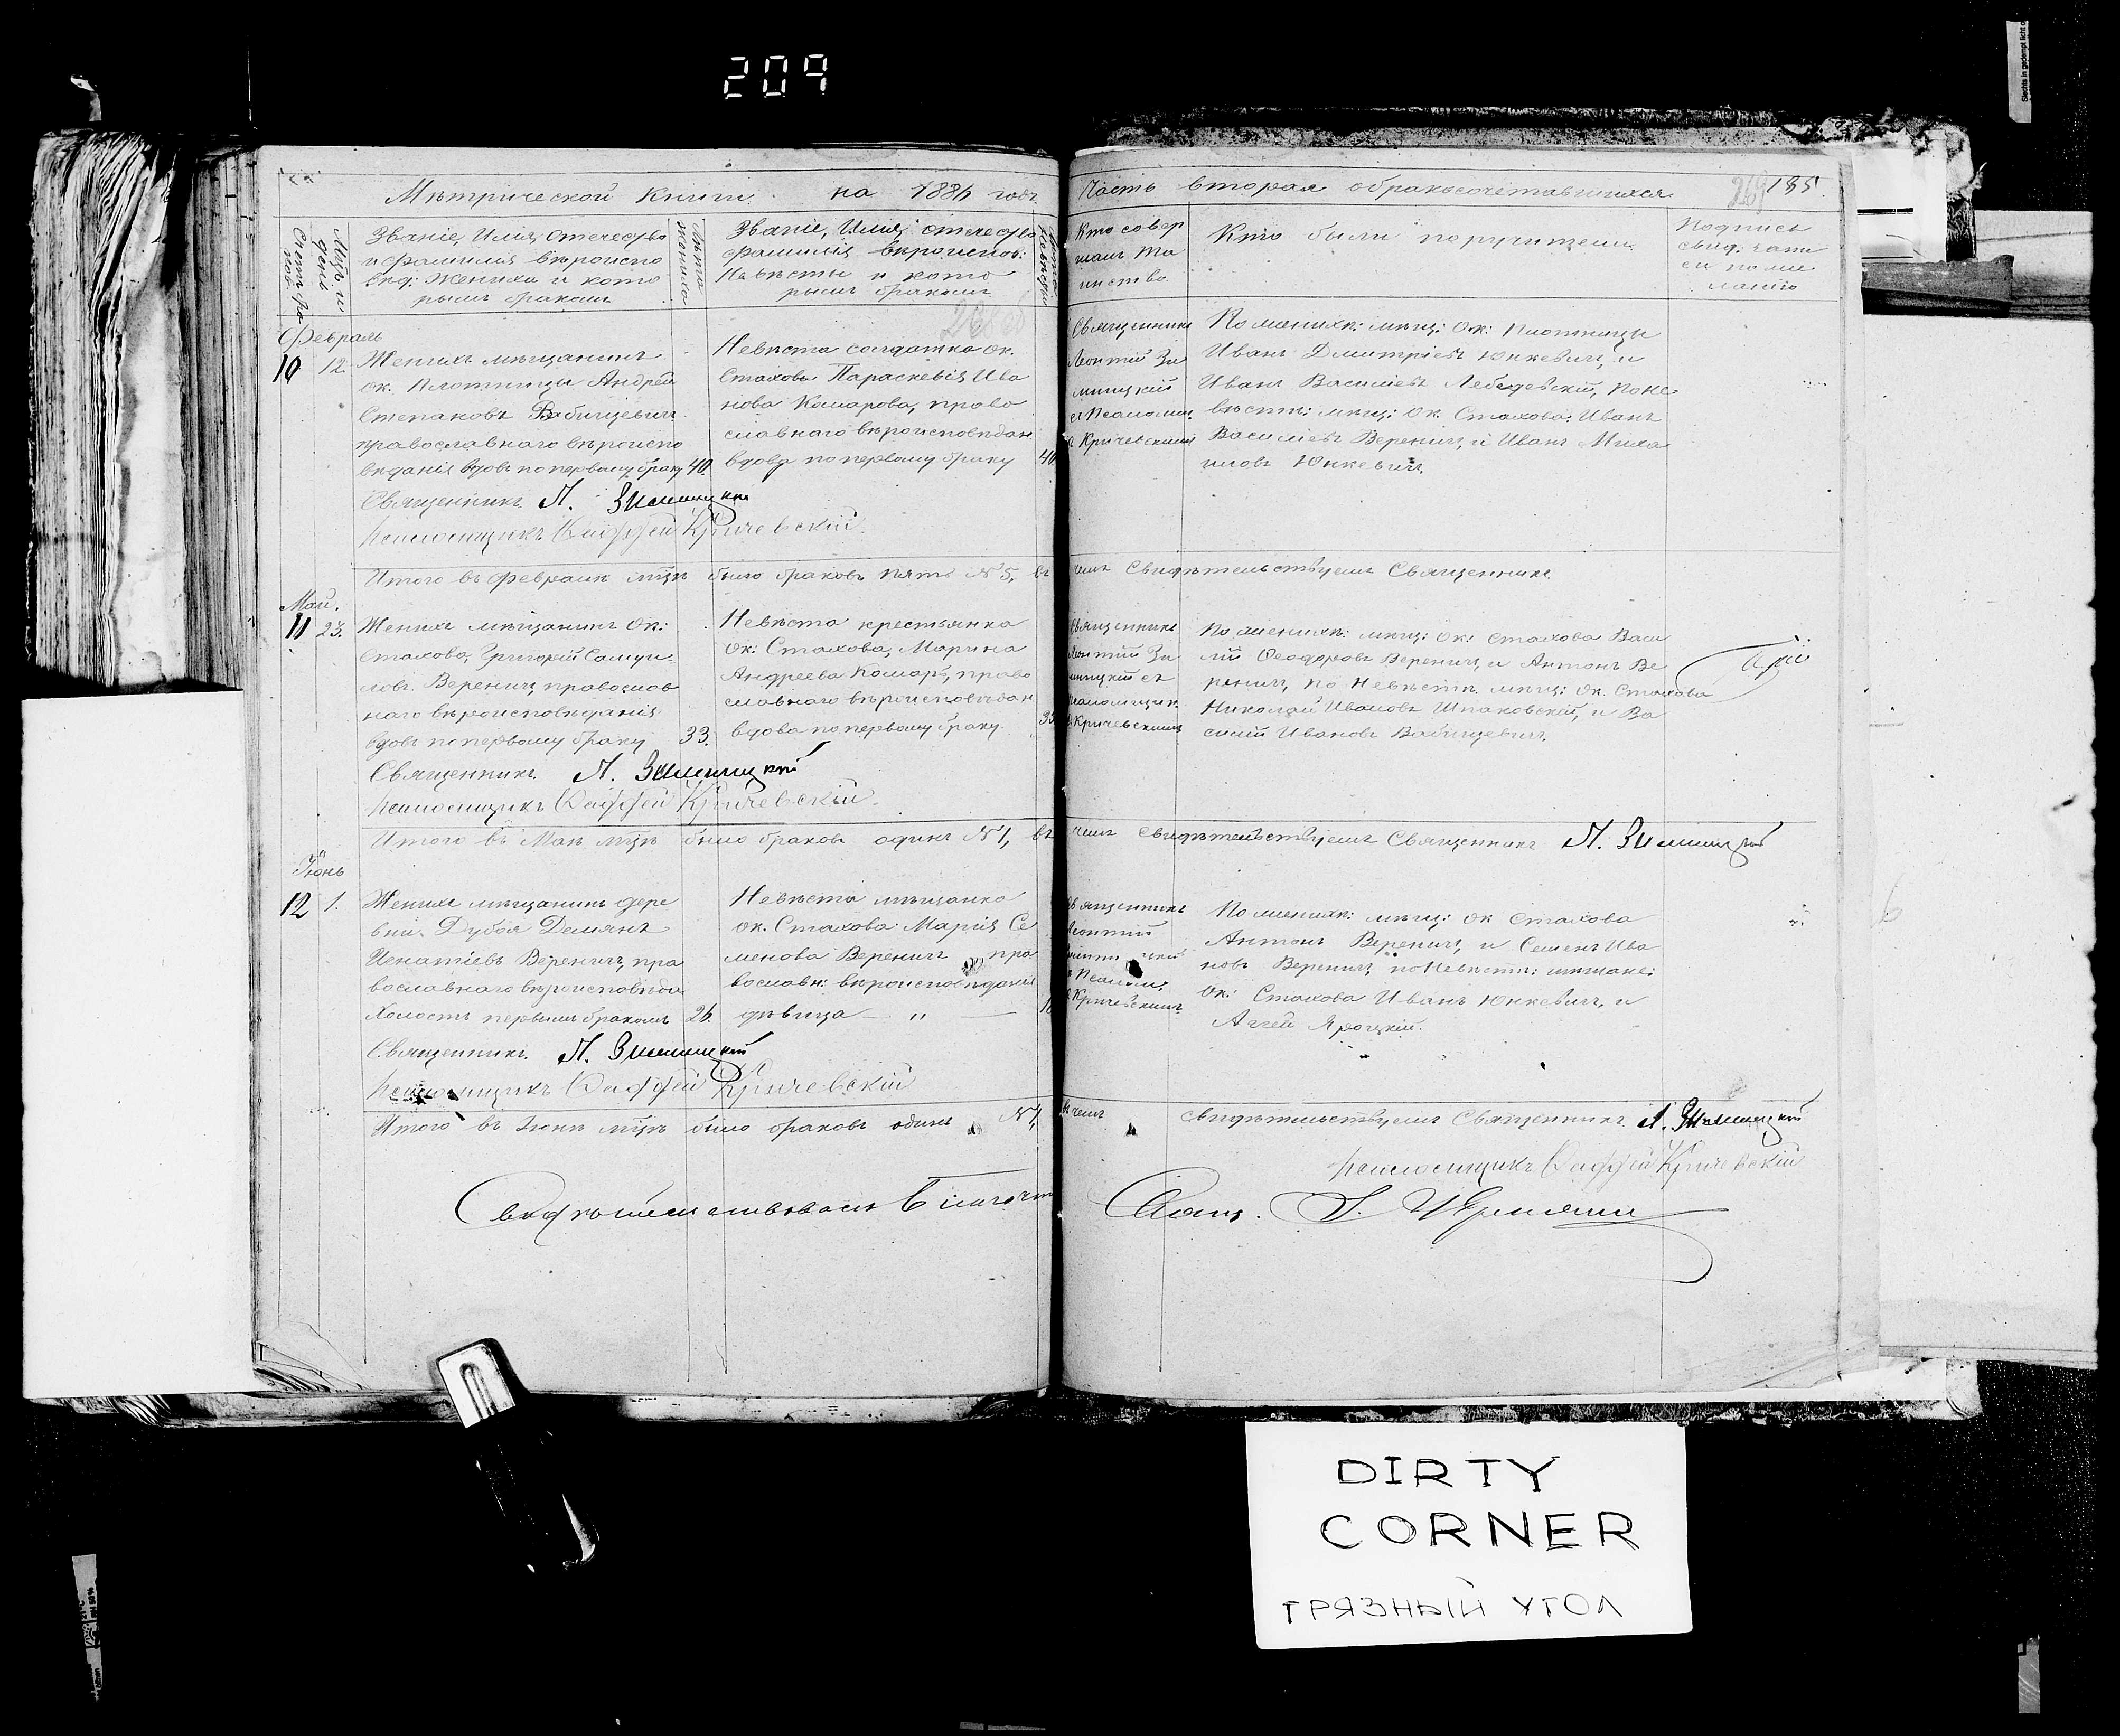 209
Метрической Книги на 1886 годъ
Часть вторая о бракосочетавшихся 185.
Счетъ браковъ
Мѣц. и день
Званіе, Имя, Отечество
и фамилія вѣроиспо
вѣд: Жениха и кото
рымъ бракомъ
Лѣта жениха
Званіе, Имя, отечество
фамилія вѣроиспов:
Невѣсты и кото
рымъ бракомъ
Лѣта Невѣсты
Кто совер
шалъ Та
инство
Кто были поручители
Подпись
свид. запи
си по же
ланію
Февраль
10 12.
Женихъ мѣщанинъ
ок. Плотницы Андрей
Степановъ Бабицевичъ
православнаго вѣроиспо
вѣданія вдовъ по первому браку 40.
Невѣста солдатка ок.
Стахова Параскевія Ива
нова Комарова, право
славнаго вѣроисповѣдан
вдова по первому браку 40
Священникъ
Леонтій Зи
мницкій
съ Псаломщ.
Кричевскимъ
По женихѣ: мѣщ: Ок: Плотницы
Иванъ Дмитріевъ Юнкевичъ, и
Иванъ Василіевъ Лебедевскій, по не
вѣстѣ: мѣщ: ок. Стахова: Иванъ
Василіевъ Вереничъ, и Иванъ Миха
иловъ Юнкевичъ.
Священникъ Л. Зимницкій
Псаломщикъ Фаддей Кричевскій.
Итого въ февралѣ мцѣ было браковъ пять №5, въ чемъ Свидѣтельствуемъ Священникъ
Май.
11 23.
Женихъ мѣщанинъ Ок:
Стахово, Григорій Самуи
ловъ Вереничъ православ
наго вѣроисповѣданія
вдовъ по первому браку 33.
Невѣста крестьянка
ок: Стахова, Марина
Андреева Комаръ, право
славнаго вѣроисповѣдан
вдова по первому браку
Священникъ
Леонтій Зи
мницкій съ
Псаломщик.
Кричевскимъ
По женихѣ: мѣщ: ок: Стахова Васи
лій Ѳеодоровъ Вереничъ, и Антонъ Ве
реничъ, по Невѣстѣ мѣщ: ок. Стахова
Николай Ивановъ Шпаковскій, и Ва
силій Ивановъ Бабицевичъ.
Священникъ Л. Зимницкій
Псаломщикъ Фаддей Кричевскій.
Итого въ Маѣ мцѣ было браков одинъ №1, въ чемъ свидѣтельствуемъ Священникъ Л. Зимницкій
Іюнь
12 1.
Женихъ мѣщанинъ дере
вни Дубоя Демянъ
Игнатіевъ Вереничъ, пра
вославнаго вѣроисповѣда
Холостъ первымъ бракомъ 26.
Невѣста мѣщанка
ок. Стахова Марія Се
менова Вереничъ пра
вославн: вѣроисповѣданія
дѣвица — „ —
Священникъ
Леонтій
Псаломщ.
Кричевскимъ
По женихѣ: мѣщ: ок Стахова
Антонъ Вереничъ, и Семенъ Ива
новъ Вереничъ по Невѣстѣ: мѣщане:
Ок: Стахова Иванъ Юнкевичъ, и
Аггей Яроцкій.
Священникъ Л. Зимницкій
Псаломщикъ Фаддей Кричевскій
Итого въ Іюнѣ мцѣ было браковъ одинъ №1, въ чемъ свидѣтельствуемъ Священникъ Л. Зимницкій
Псаломщикъ Фаддей Кричевскій
Свидѣтельствовалъ Благочин
DIRTY
CORNER
ГРЯЗНЫЙ УГОЛ